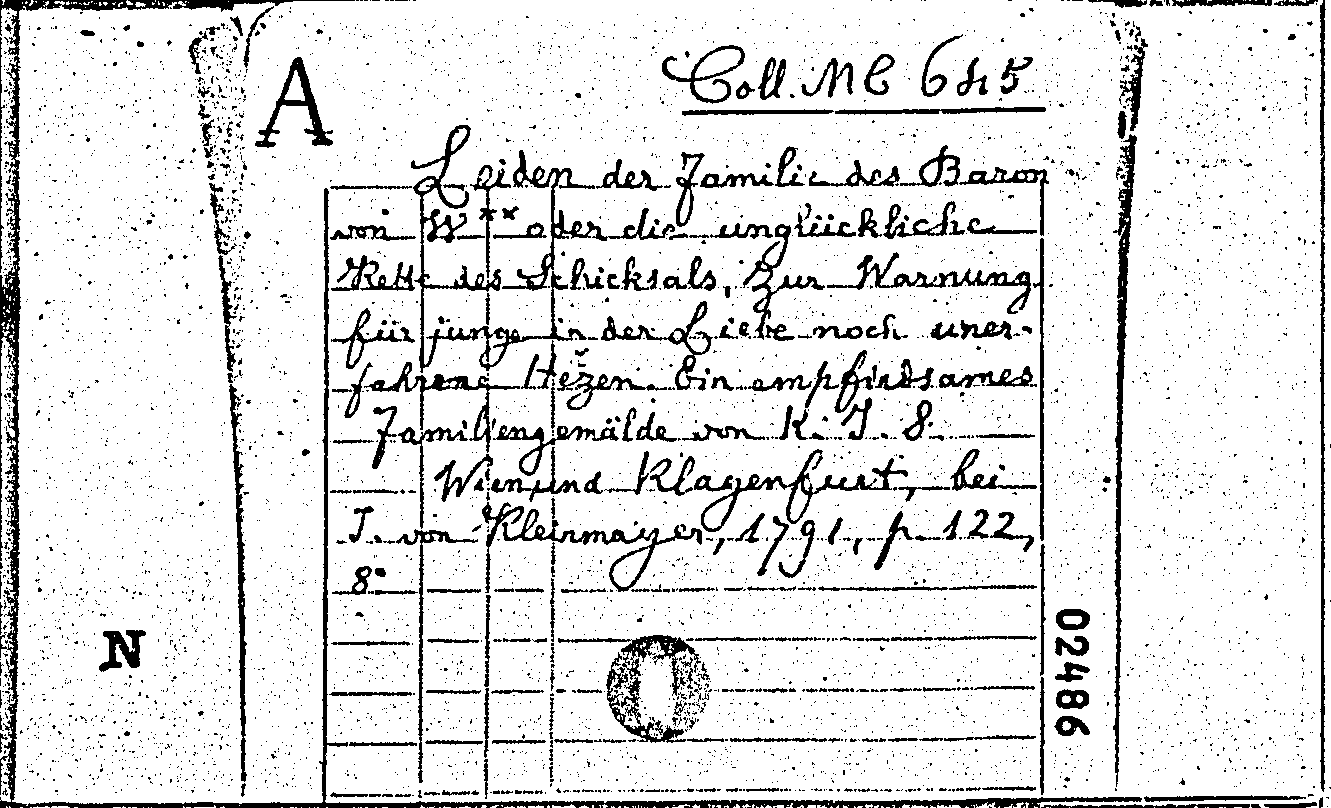 A
Coll. MC 645
Leiden der Familie des Baron
von W** oder die unglückliche
Kette des Schicksals, Zur Warnung
für junge in der Liebe noch uner-
fahrene Hežen. Ein empfindsames
Familiengemälde von K. J. S.
Wien und Klagenfurt, bei
J. von Kleinmayer, 1791, p. 122,
8°
N
02486